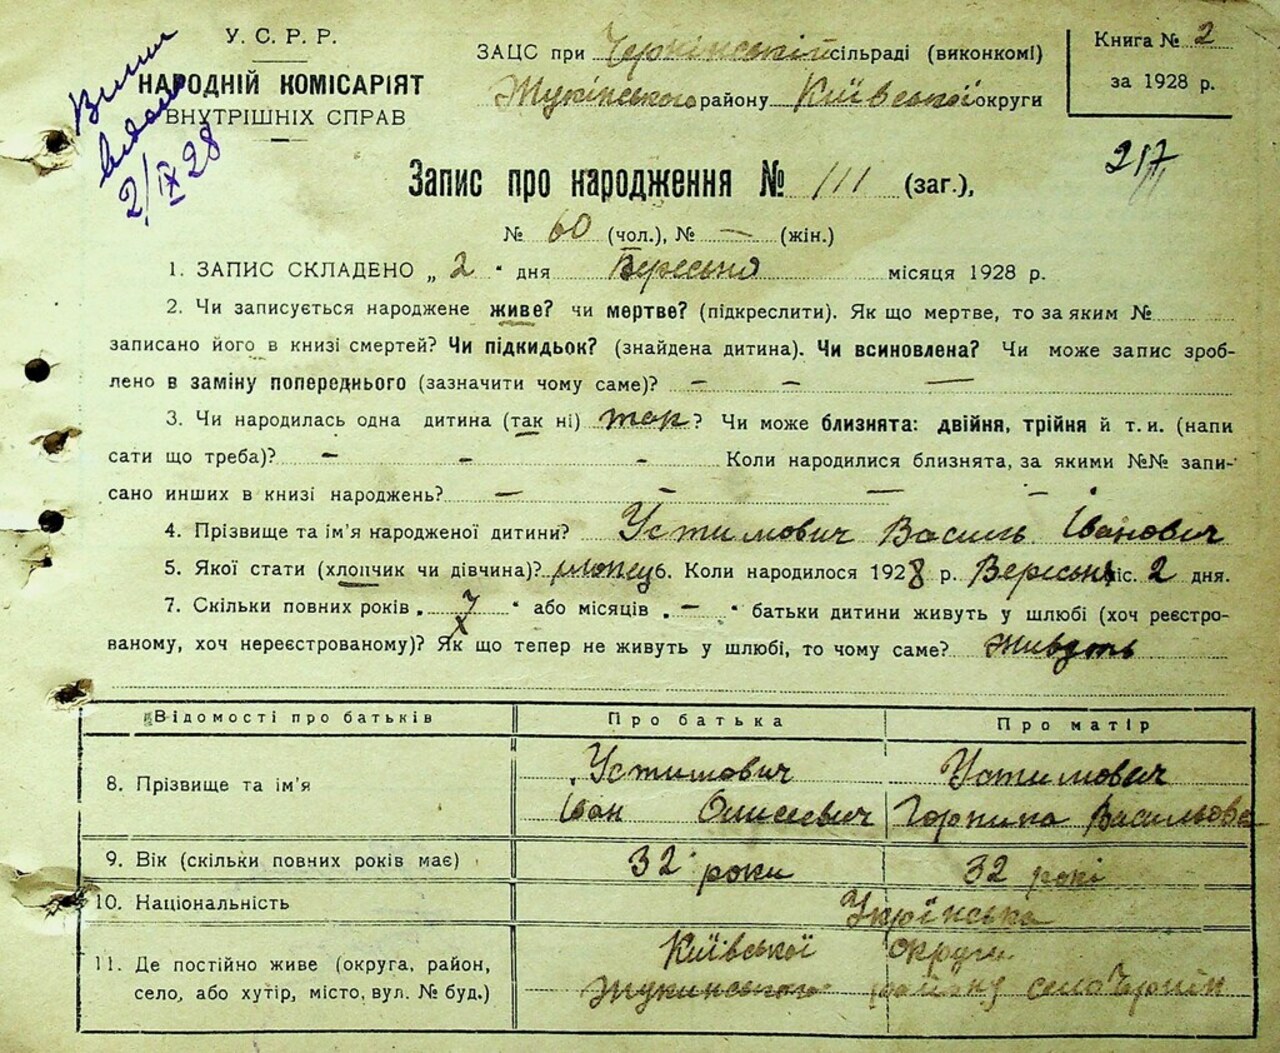 У. С. Р. Р.
НАРОДНІЙ КОМІСАРІЯТ
ВНУТРІШНІХ СПРАВ
2/IX 28
ЗАЦС при Чернінській сільраді (виконкомі)
Жукінського району Київської округи
Книга № 2
за 1928 р.
217
Запис про народження № 111 (заг.),
№ 60 (чол.), № — (жін.)
1. ЗАПИС СКЛАДЕНО „ 2 " дня Вересня місяця 1928 р.
2. Чи записується народжене живе? чи мертве? (підкреслити). Як що мертве, то за яким №
записано його в книзі смертей? Чи підкидьок? (знайдена дитина). Чи всиновлена? Чи може запис зроб-
лено в заміну попереднього (зазначити чому саме)? — — —
3. Чи народилась одна дитина (так ні) так? Чи може близнята: двійня, трійня й т. и. (напи
сати що треба)? — — — Коли народилися близнята, за якими №№ запи-
сано инших в книзі народжень? — — — —
4. Прізвище та ім'я народженої дитини? Устимович Василь Іванович
5. Якої стати (хлопчик чи дівчина)? хлопець 6. Коли народилося 1928 р. Вересня міс. 2 дня.
7. Скільки повних років „ 7 " або місяців „ — " батьки дитини живуть у шлюбі (хоч реєстро-
ваному, хоч нереєстрованому)? Як що тепер не живуть у шлюбі, то чому саме? живуть
Відомості про батьків Про батька Про матір
8. Прізвище та ім'я Устимович Устимович
Іван Олисеевич Горпина Васильова
9. Вік (скільки повних років має) 32 роки 32 рокі
10. Національність Украінська
11. Де постійно живе (округа, район, Київської округи
село, або хутір, місто, вул. № буд.) Жукинського району село Чернін